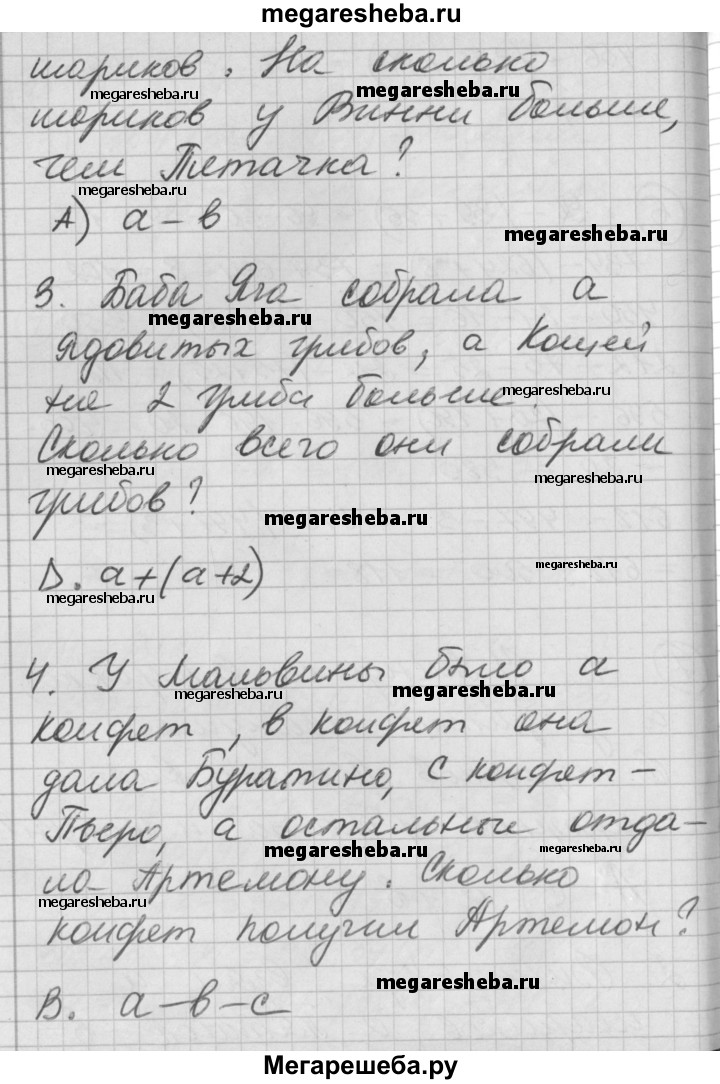 megaresheba.ru
шариков. На сколько
megaresheba.ru megaresheba.ru
шариков у Винни больше,
чем Пятачка?
megaresheba.ru
А) а – в
megaresheba.ru
3. Баба Яга собрала а
megaresheba.ru
ядовитых грибов, а Кощей
на 2 гриба больше.
megaresheba.ru
Сколько всего они собрали
megaresheba.ru
megaresheba.ru
грибов?
megaresheba.ru
D. а+(а+2)
megaresheba.ru
megaresheba.ru
4. У Мальвины было а
megaresheba.ru megaresheba.ru
конфет, в конфет она
дала Буратино, с конфет –
megaresheba.ru
Пьеро, а остальные отда–
megaresheba.ru megaresheba.ru
ла Артемону. Сколько
megaresheba.ru
конфет получил Артемон?
megaresheba.ru
В. а–в–с
Мегарешеба.ру